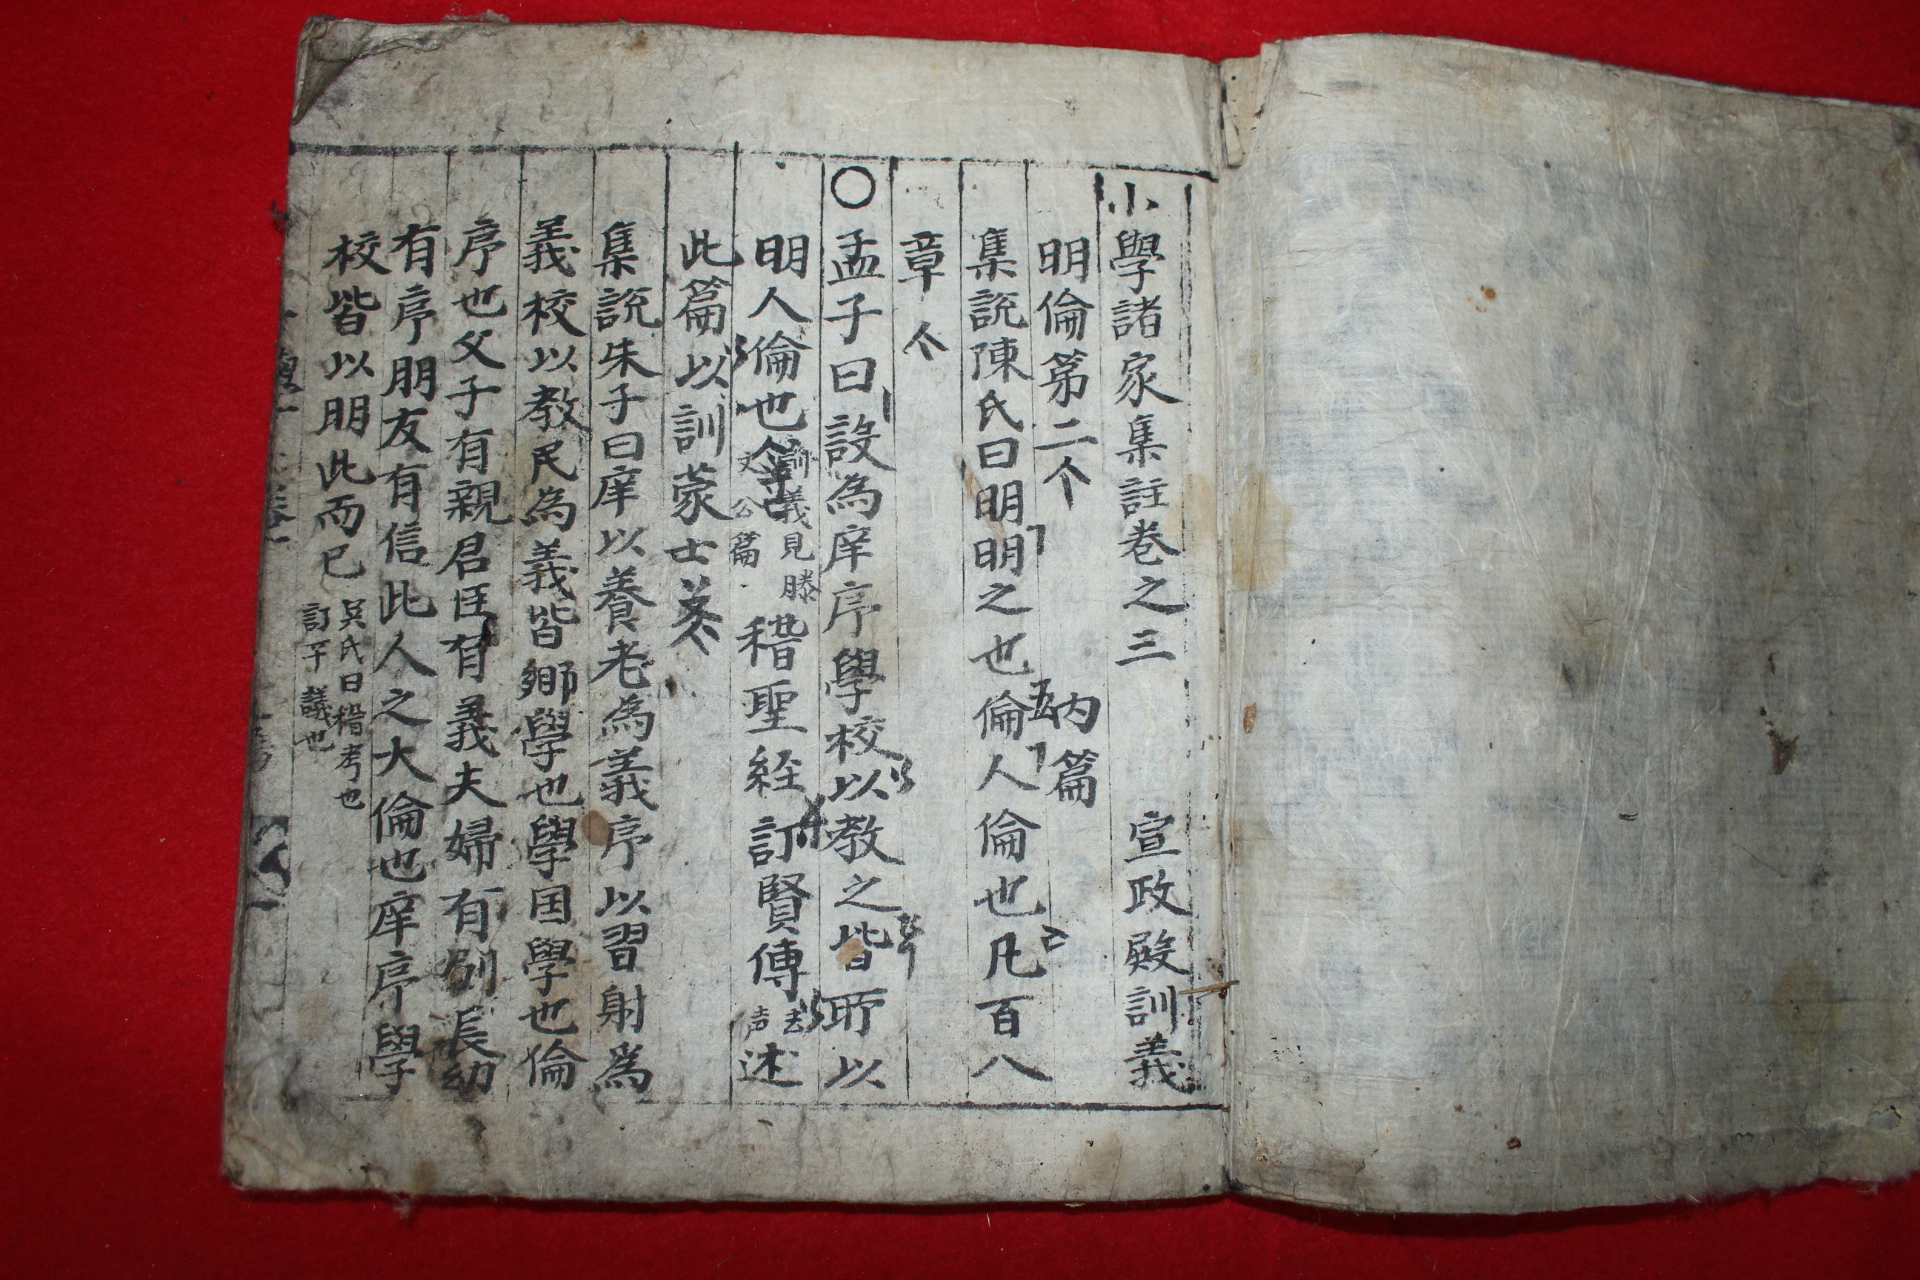 小學諸家集註卷之三 宣政殿訓義
明倫第二 内篇
集說陳氏曰明明之也倫人倫也凡百八
章
○孟子曰設為庠序學校以教之皆所以
明人倫也 訓義見滕文公篇 稽聖経訂賢傳 去声 述
此篇以訓蒙士
集說朱子曰庠以養老為義序以習射爲
義校以教民為義皆鄉學也學国學也倫
序也父子有親君臣有義夫婦有別長幼
有序朋友有信此人之大倫也庠序學
校皆以明此而已 吳氏曰稽考也訂平議也